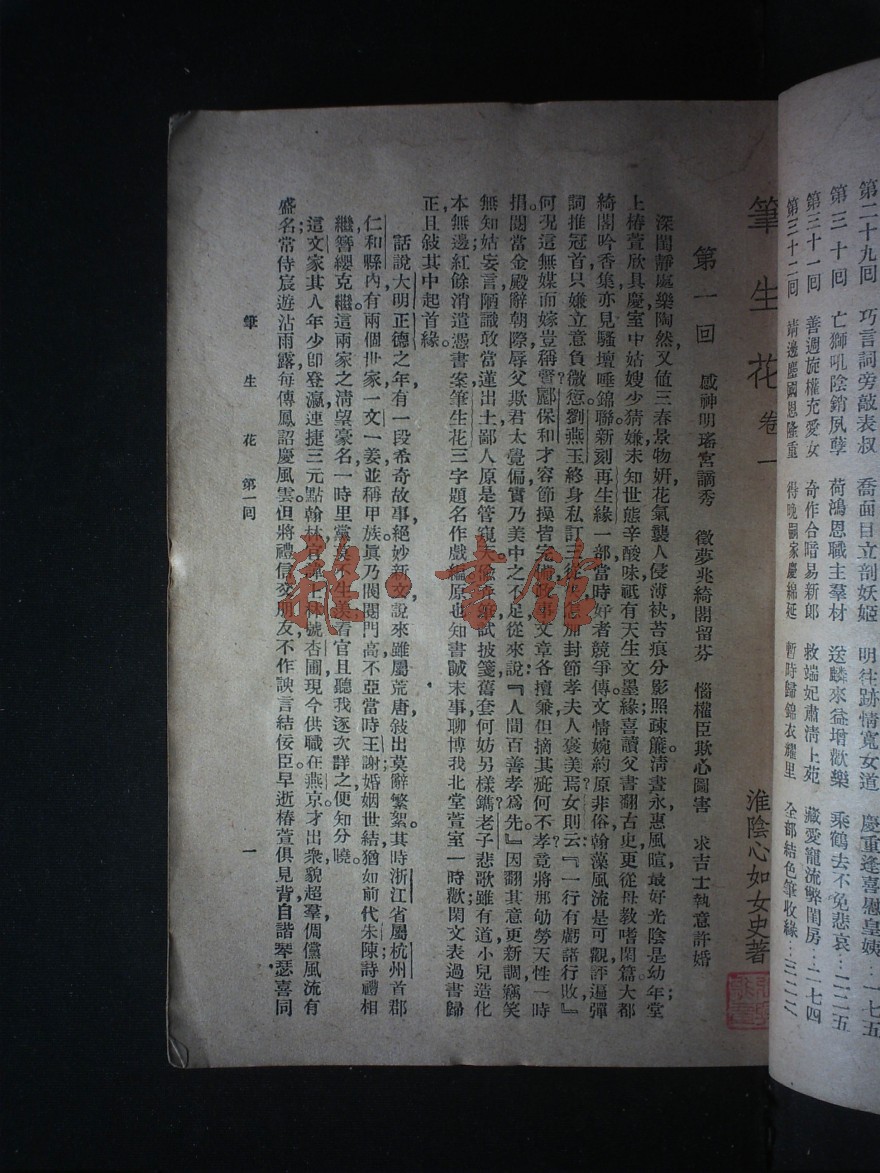 第二十九回　巧言詞旁敲表叔　喬面目立剖妖姬　明往跡情寬女道　慶重逢喜慰皇姨…一七五
第三十回　亡獅吼陰銷夙孽　荷鴻恩職主羣材　送麟來益增歡樂　乘鶴去不免悲哀…二二五
第三十一回　善週旋權充愛女　奇作合暗易新郎　救端妃肅淸上苑　藏愛寵流弊閨房…二七四
第三十二回　靖邊塵國恩隆重　得晚嗣家慶綿延　暫時歸錦衣耀里　全部結色筆收緣…三二二
筆生花　卷一
淮陰心如女史著
第一回　感神明瑤宮謫秀　徵夢兆綺閣留芬　惱權臣欺心圖害　求吉士執意許婚
深閨靜處樂陶然，又値三春景物姸，花氣襲人侵薄袂，苔痕分影照疎簾。淸晝永，惠風暄，最好光陰是幼年，堂
上椿萱欣具慶，室中姑嫂少猜嫌。未知世態辛酸味，祇有天生文墨緣，喜讀父書翻古史，更從母敎嗜閑篇。大都
綺閣吟香集，亦見騷壇唾錦聯，新刻再生緣一部，當時好者競爭傳。文情婉約原非俗，翰藻風流是可觀，評遍彈
詞推冠首，只嫌立意負微愆，劉燕玉終身私訂三從
封節孝夫人褒美焉？女則云：『一行有虧諸行敗』
何況這無媒而嫁豈稱賢，酈保和才容節操皆完
事文章各擅兼，但摘其疵何不孝，竟將那劬勞天性一時
捐，閱當金殿辭朝際，辱父欺君太覺偏，實乃美中之不足，從來說：『人間百善孝爲先。』因翻其意更新調，竊笑
無知姑妄言，陋識敢當蓮出土，鄙人原是管窺天，
試披箋，舊套何妨另樣鐫，老子悲歌雖有道，小兒造化
本無邊，紅餘消遣憑書案，筆生花三字題名作戲編，原也知書誠末事，聊博我北堂萱室一時歡，閑文表過書歸
正，且敍其中起首緣。
話說大明正德之年，有一段希奇故事，絕妙新文，說來雖屬荒唐，敍出莫辭繁絮。其時浙江省屬杭州首郡
仁和縣內，有兩個世家，一文一姜，並稱甲族。眞乃閥閱門高，不亞當時王謝，婚姻世結，猶如前代朱陳，詩禮相
繼，簪纓克繼。這兩家之淸望豪名，一時里黨莫不生羨。看官且聽我逐次詳之，便知分曉。
這文家其人年少卽登瀛，連捷三元點翰林，官
上林號杏圃，現今供職在燕京。才出衆，貌超羣，倜儻風流有
盛名，常侍宸遊沾雨露，每傳鳳詔慶風雲。但將禮信交朋友，不作諛言結佞臣。早逝椿萱俱見背，自諧琴瑟喜同
筆生花　第一回　一